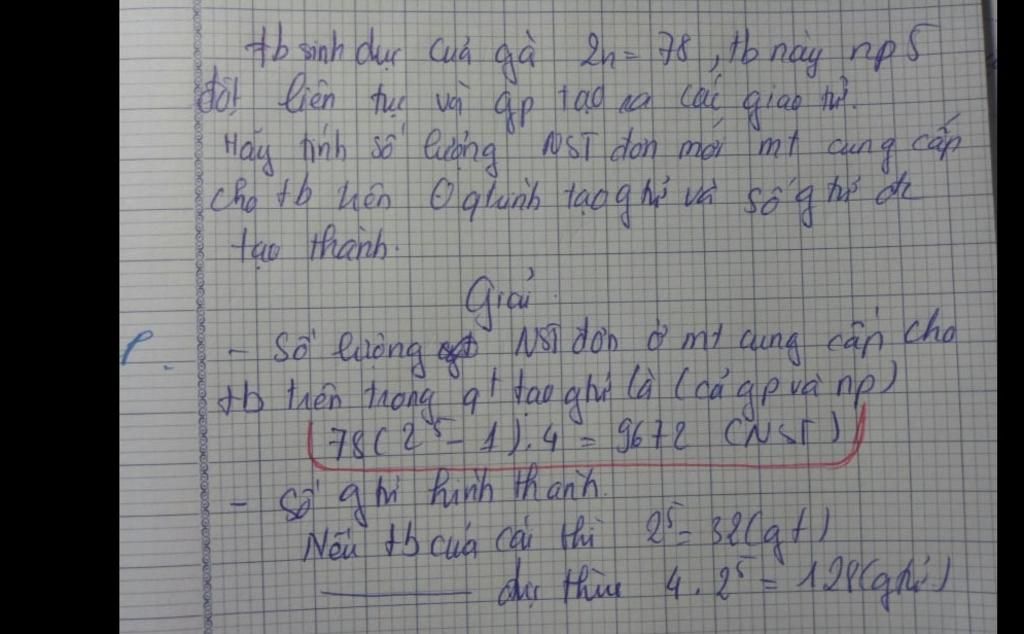 tb sinh dục của gà 2n = 78, tb này np 5
đợt liên tục và gp tạo ra các giao tử.
Hãy tính số lượng NST đơn mới mt cung cấp
cho tb trên ở qtrình tạo gtử và số gtử đc
tạo thành.
Giải
- Số lượng NST đơn ở mt cung cấp cho
tb trên trong qt tạo gtử là (cả gp và np)
78(2^5 - 1).4 = 9672 (NST)
- Số gtử hình thành.
Nếu tb của cái thì 2^5 = 32(gt)
đực thì 4.2^5 = 128(gtử)